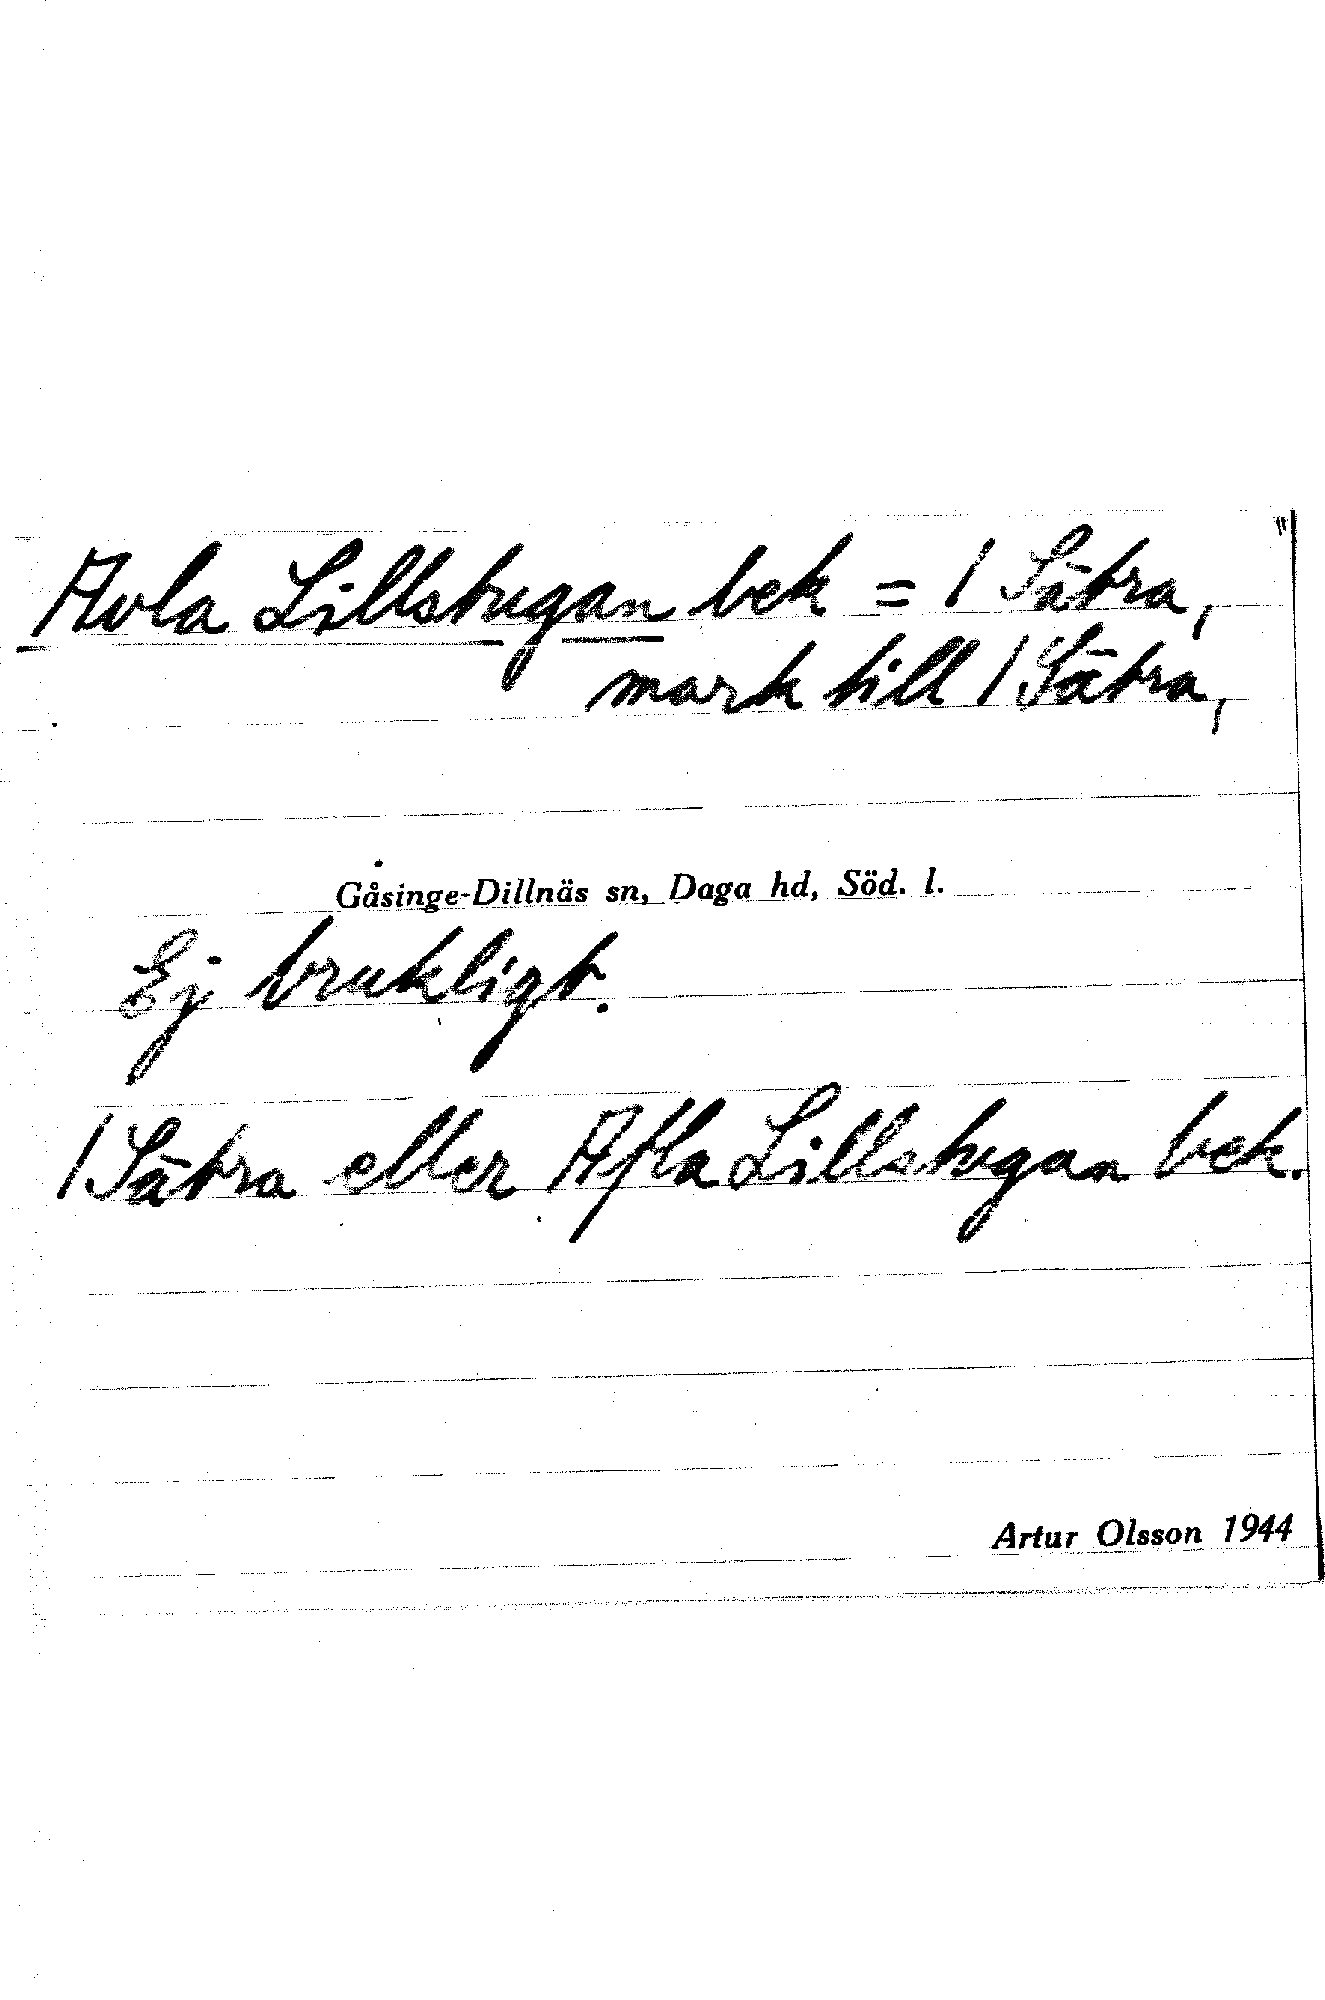 Avla Lillstugan bek = / Sätra,
mark till / Sätra,
Gåsinge-Dillnäs sn, Daga hd, Söd. l.
Ej brukligt.
/ Sätra eller Afla Lillstugan bek.
Artur Olsson 1944